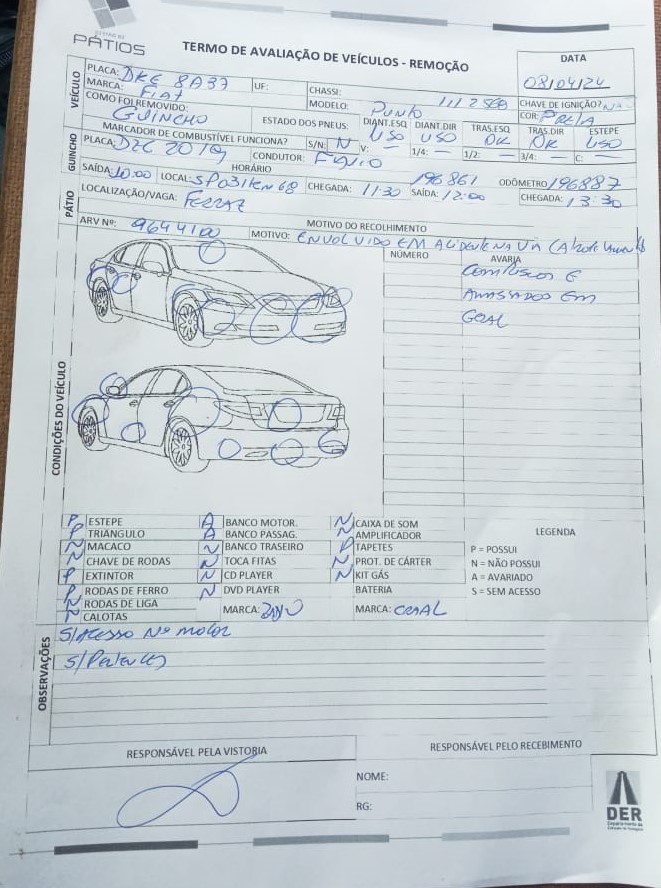 PÁTIOS
TERMO DE AVALIAÇÃO DE VEÍCULOS - REMOÇÃO
DATA
08/04/24
VEÍCULO
PLACA: DKE 8A37
UF:
CHASSI:
MARCA: Fiat
MODELO: Punto
CHAVE DE IGNIÇÃO?
COMO FOI REMOVIDO: GUINCHO
ESTADO DOS PNEUS:
DIANT.ESQ USO
DIANT.DIR USO
TRAS.ESQ OK
TRAS.DIR OK
ESTEPE USO
COR:
MARCADOR DE COMBUSTÍVEL FUNCIONA?
S/N: N
V: —
1/4: —
1/2: —
3/4: —
C: —
GUINCHO
PLACA:
CONDUTOR:
HORÁRIO
SAÍDA: 10:00
LOCAL:
CHEGADA: 11:30
196861
SAÍDA: 12:00
ODÔMETRO 196887
CHEGADA: 13:30
PÁTIO
LOCALIZAÇÃO/VAGA: FERRAZ
MOTIVO DO RECOLHIMENTO
ARV Nº: 9644100
MOTIVO: ENVOLVIDO EM
CONDIÇÕES DO VEÍCULO
NÚMERO
AVARIA
AMASSADOS EM
GERAL
P ESTEPE
P TRIÂNGULO
N MACACO
N CHAVE DE RODAS
P EXTINTOR
P RODAS DE FERRO
N RODAS DE LIGA
N CALOTAS
A BANCO MOTOR.
A BANCO PASSAG.
N BANCO TRASEIRO
N TOCA FITAS
N CD PLAYER
N DVD PLAYER
MARCA:
N CAIXA DE SOM
AMPLIFICADOR
P TAPETES
N PROT. DE CÁRTER
N KIT GÁS
BATERIA
MARCA: CRAL
LEGENDA
P = POSSUI
N = NÃO POSSUI
A = AVARIADO
S = SEM ACESSO
OBSERVAÇÕES
S/ Acesso Nº motor
RESPONSÁVEL PELA VISTORIA
RESPONSÁVEL PELO RECEBIMENTO
NOME:
RG:
DER